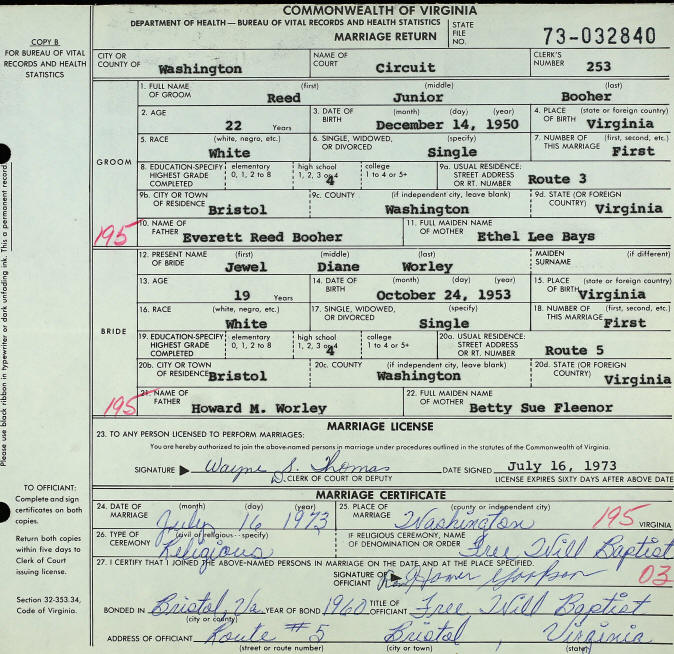 COMMONWEALTH OF VIRGINIA
DEPARTMENT OF HEALTH — BUREAU OF VITAL RECORDS AND HEALTH STATISTICS
MARRIAGE RETURN
STATE FILE NO. 73-032840
COPY B
FOR BUREAU OF VITAL RECORDS AND HEALTH STATISTICS
CITY OR COUNTY OF Washington
NAME OF COURT Circuit
CLERK'S NUMBER 253
GROOM
1. FULL NAME OF GROOM (first) Reed (middle) Junior (last) Booher
2. AGE 22 Years
3. DATE OF BIRTH (month) (day) (year) December 14, 1950
4. PLACE OF BIRTH (state or foreign country) Virginia
5. RACE (white, negro, etc.) White
6. SINGLE, WIDOWED, OR DIVORCED (specify) Single
7. NUMBER OF THIS MARRIAGE (first, second, etc.) First
8. EDUCATION-SPECIFY HIGHEST GRADE COMPLETED elementary 0, 1, 2 to 8 high school 1, 2, 3 or 4 4 college 1 to 4 or 5+
9a. USUAL RESIDENCE: STREET ADDRESS OR RT. NUMBER Route 3
9b. CITY OR TOWN OF RESIDENCE Bristol
9c. COUNTY (if independent city, leave blank) Washington
9d. STATE (OR FOREIGN COUNTRY) Virginia
195
10. NAME OF FATHER Everett Reed Booher
11. FULL MAIDEN NAME OF MOTHER Ethel Lee Bays
BRIDE
12. PRESENT NAME OF BRIDE (first) Jewel (middle) Diane (last) Worley
MAIDEN SURNAME (if different)
13. AGE 19 Years
14. DATE OF BIRTH (month) (day) (year) October 24, 1953
15. PLACE OF BIRTH (state or foreign country) Virginia
16. RACE (white, negro, etc.) White
17. SINGLE, WIDOWED, OR DIVORCED (specify) Single
18. NUMBER OF THIS MARRIAGE (first, second, etc.) First
19. EDUCATION-SPECIFY HIGHEST GRADE COMPLETED elementary 0, 1, 2 to 8 high school 1, 2, 3 or 4 4 college 1 to 4 or 5+
20a. USUAL RESIDENCE: STREET ADDRESS OR RT. NUMBER Route 5
20b. CITY OR TOWN OF RESIDENCE Bristol
20c. COUNTY (if independent city, leave blank) Washington
20d. STATE (OR FOREIGN COUNTRY) Virginia
195
21. NAME OF FATHER Howard M. Worley
22. FULL MAIDEN NAME OF MOTHER Betty Sue Fleenor
MARRIAGE LICENSE
23. TO ANY PERSON LICENSED TO PERFORM MARRIAGES:
You are hereby authorized to join the above-named persons in marriage under procedures outlined in the statutes of the Commonwealth of Virginia.
SIGNATURE Wayne S. Thomas DATE SIGNED July 16, 1973
D. CLERK OF COURT OR DEPUTY LICENSE EXPIRES SIXTY DAYS AFTER ABOVE DATE
MARRIAGE CERTIFICATE
24. DATE OF MARRIAGE (month) (day) (year) July 16 1973
25. PLACE OF MARRIAGE (county or independent city) Washington 195 VIRGINIA
26. TYPE OF CEREMONY (civil or religious-specify) Religious
IF RELIGIOUS CEREMONY, NAME OF DENOMINATION OR ORDER Free Will Baptist
03
27. I CERTIFY THAT I JOINED THE ABOVE-NAMED PERSONS IN MARRIAGE ON THE DATE AND AT THE PLACE SPECIFIED.
SIGNATURE OF OFFICIANT Rev. Homer
BONDED IN Bristol, Va. YEAR OF BOND 1960 TITLE OF OFFICIANT Free Will Baptist
(city or county)
ADDRESS OF OFFICIANT Route # 5 Bristol, Virginia
(street or route number) (city or town) (state)
Please use black ribbon in typewriter or dark unfading ink. This a permanent record
TO OFFICIANT:
Complete and sign certificates on both copies.
Return both copies within five days to Clerk of Court issuing license.
Section 32-353.34, Code of Virginia.